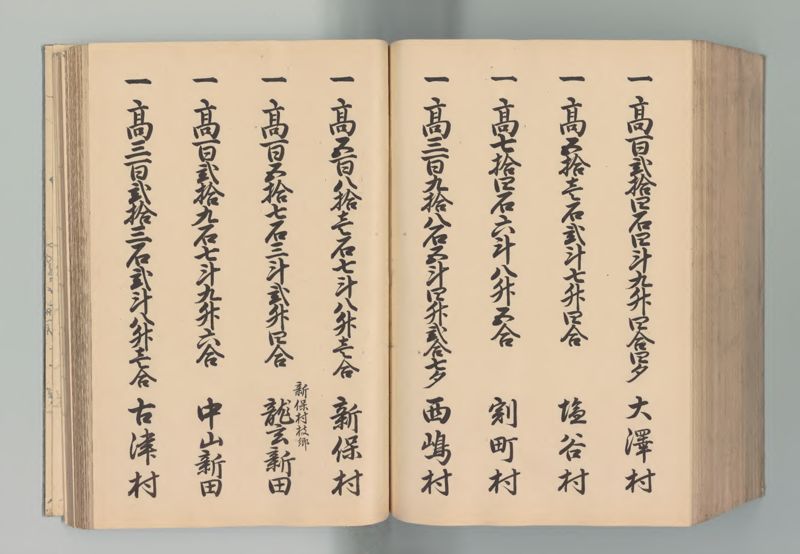 一高百弐拾四石四斗九升四合四夕 大澤村
一高五拾壱石弐斗七升四合 塩谷村
一高七拾四石六斗八升五合 割町村
一高三百九拾八石五斗四升弐合七夕 西嶋村
一高五百八拾壱石七斗八升壱合 新保村
新保村枝郷
一高百五拾七石三斗弐升四合 龍玄新田
一高百弐拾九石七斗九升六合 中山新田
一高三百弐拾三石弐斗八升壱合 古津村